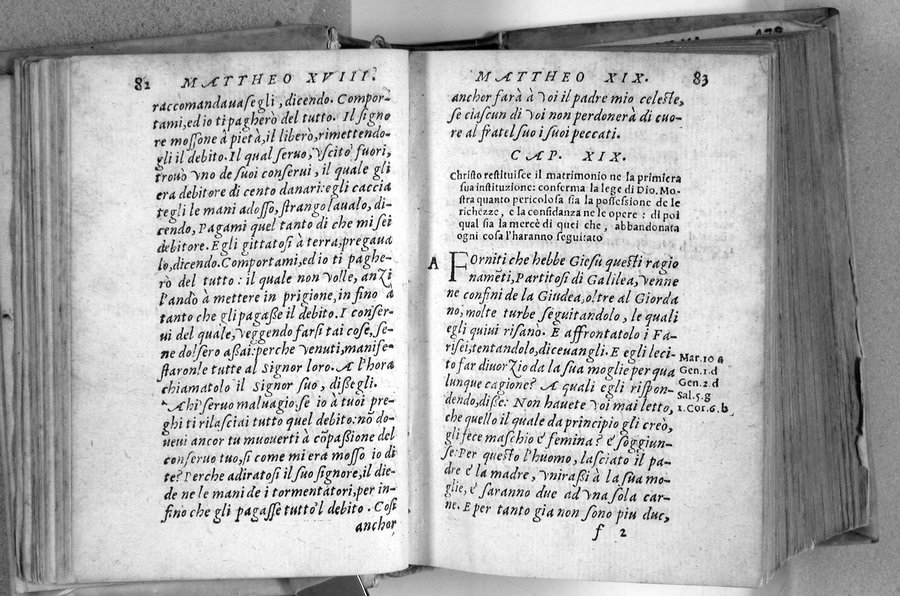 82 MATTHEO XVIII.
raccomandauasegli, dicendo. Compor-
tami, ed io ti pagherò del tutto. Il signo
re mossone à pietà, il liberò, rimettendo-
gli il debito. Il qual seruo, vscito fuori,
trouò vno de suoi conserui, il quale gli
era debitore di cento danari: egli caccia
tegli le mani adosso, strangolaualo, di-
cendo, Pagami quel tanto di che mi sei
debitore. E gli gittatosi à terra, pregaua
lo, dicendo. Comportami, ed io ti paghe-
rò del tutto: il quale non volle, anzi
l'andò à mettere in prigione, in fino à
tanto che gli pagasse il debito. I conser-
ui del quale, veggendo farsi tai cose, se-
ne dolsero assai: perche venuti, manife-
starono tutte al Signor loro. A l'hora
chiamatolo il Signor suo, dissegli.
Ahi seruo maluagio, se io à tuoi pre-
ghi ti rilasciai tutto quel debito: nõ do-
ueui ancor tu muouerti à cõpassione del
conseruo tuo, si come mi era mosso io di
te? Perche adiratosi il suo signore, il die-
de ne le mani de i tormentatori, per in-
fino che gli pagasse tutto'l debito. Cosi
anchor
MATTHEO XIX. 83
anchor farà à voi il padre mio celeste,
se ciascun di voi non perdonerà di cuo-
re al fratel suo i suoi peccati.
CAP. XIX.
Christo restituisce il matrimonio ne la primiera
sua instituzione: conferma la lege di Dio. Mo-
stra quanto pericolosa sia la possessione de le
richezze, e la confidanza ne le opere: di poi
qual sia la mercè di quei che, abbandonata
ogni cosa l'haranno seguitato
A FOrniti che hebbe Giesu questi ragio
namẽti, Partitosi di Galilea, venne
ne confini de la Giudea, oltre al Giorda
no, molte turbe seguitandolo, le quali
egli quiui risanò. E affrontatolo i Fa-
risei, tentandolo, diceuangli. E egli leci-
to far diuorzio da la sua moglie per qua
lunque cagione? A quali egli rispon-
dendo, disse: Non hauete voi mai letto,
che quello il quale da principio gli creò,
gli fece maschio e femina? e soggiun-
se: Per questo l'huomo, lasciato il pa-
dre e la madre, vnirassi à la sua mo-
glie, e saranno due ad vna sola car-
ne. E per tanto gia non sono piu due,
Mar.10 a
Gen.1.d
Gen.2.d
Sal.5.g
1.Cor.6.b
f 2